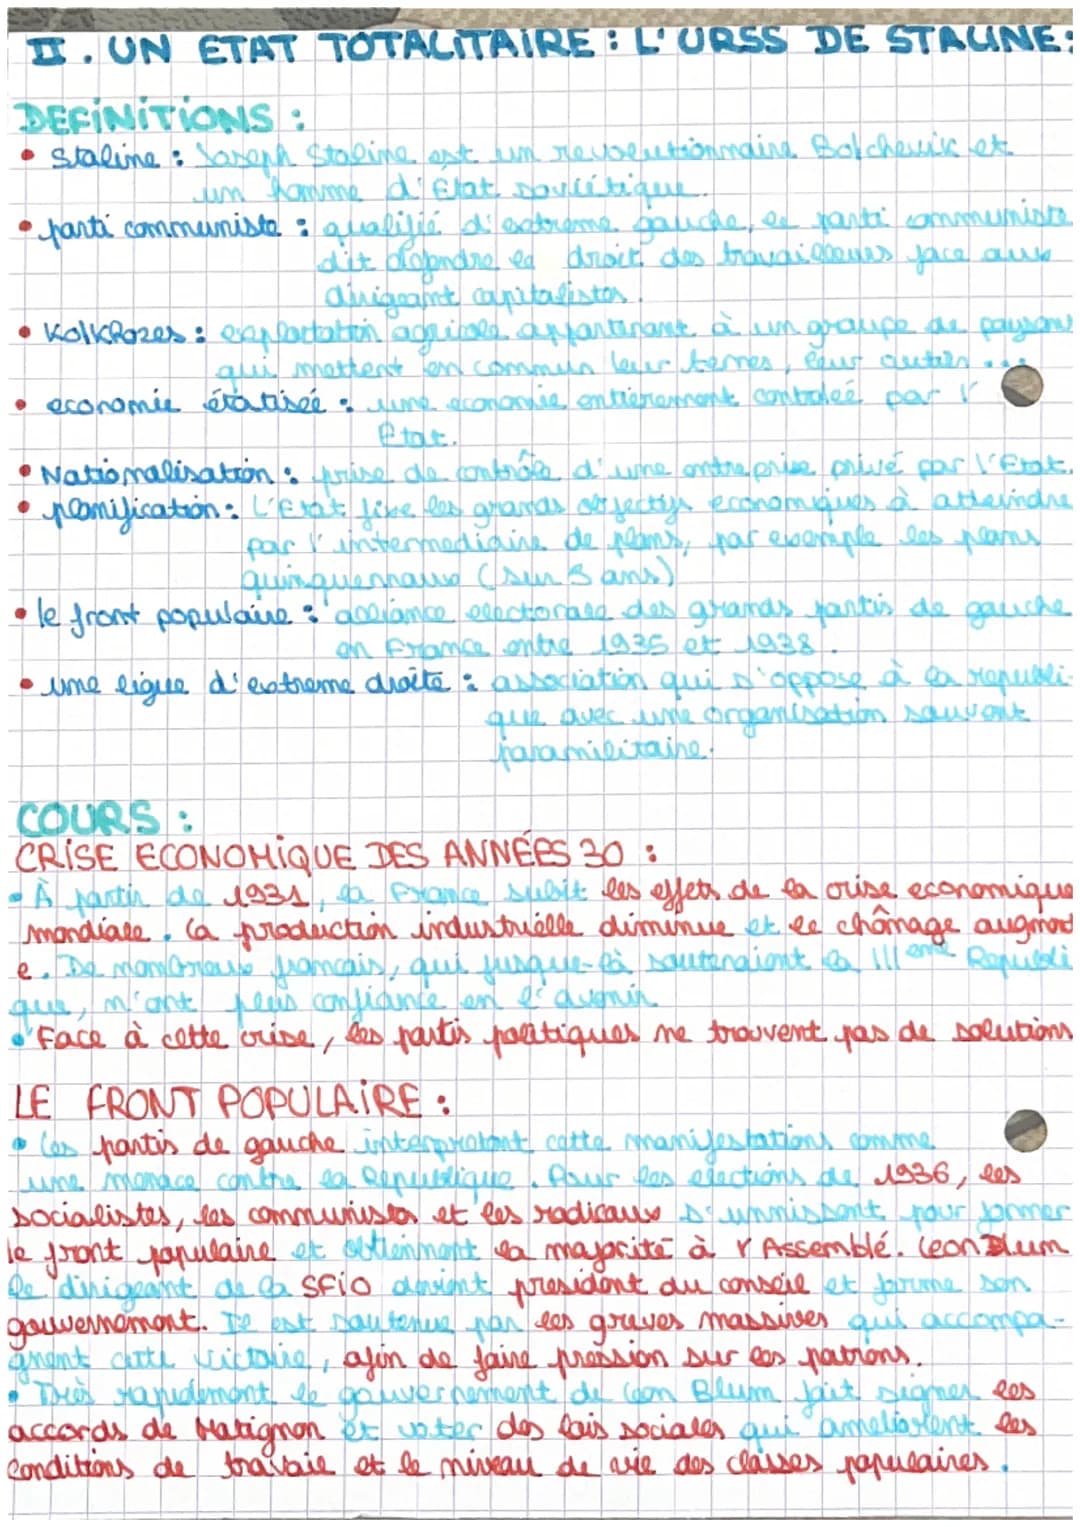 II. UN ETAT TOTALITAIRE : L'URSS DE STALINE:
DEFINITIONS :
• Staline : Joseph Staline est un revolutionnaire Bolchevik et
un homme d'Etat soviétique.
• parti communiste : qualifié d'extreme gauche, le parti communiste
dit defendre le droit des travailleurs face aux
dirigeant capitalistes.
• Kolkhozes : exploitation agricole appartenant à un groupe de paysans
qui mettent en commun leur terres, leur outils ...
• economie étatiseé : une economie entièrement controleé par l'
Etat.
• Nationalisation : prise de contrôle d'une entreprise privé par l'Etat.
• planification : L'Etat fixe les grands objectifs economiques à atteindre
par l'intermediaire de plans, par exemple les plans
quinquennaux (sur 5 ans)
• le front populaire : alliance electorale des grands partis de gauche
en France entre 1935 et 1938.
• une ligue d'extreme droite : association qui s'oppose à la republi-
que avec une organisation souvent
paramilitaire.
COURS :
CRISE ECONOMIQUE DES ANNÉES 30 :
• À partir de 1931, la France subit les effets de la crise economique
mondiale. La production industrielle diminue et le chômage augment
e. De nombreux francais, qui jusque-là soutenaient la IIIeme Republi
que, n'ont plus confiance en l'avenir
• Face à cette crise, les partis politiques ne trouvent pas de solutions
LE FRONT POPULAIRE :
• Les partis de gauche interpretent cette manifestations comme
une menace contre la Republique. Pour les elections de 1936, les
socialistes, les communistes et les radicaux s'unnissent pour former
le front populaire et obtiennent la majorité à l'Assemblé. Leon Blum
le dirigeant de la SFIO devient president du conseil et forme son
gouvernement. Il est soutenue par les greves massives qui accompa-
gnent cette victoire, afin de faire pression sur les patrons.
• Très rapidement le gouvernement de Leon Blum fait signer les
accords de Matignon et voter des lois sociales qui ameliorent les
conditions de travail et le niveau de vie des classes populaires.